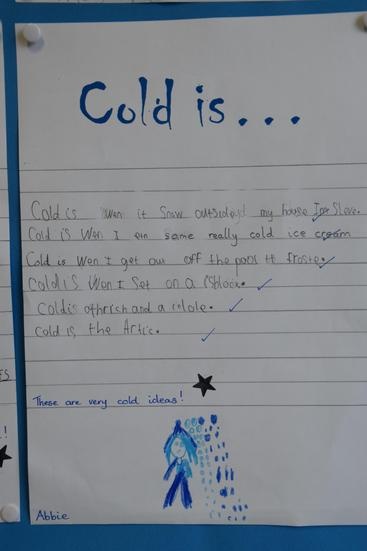 Cold is...
Cold is wen it Snow outside my house
Cold is Wen I em some really cold ice cream
Cold is Wen I get out off the pool it
Cold is Wen I Set on a
Cold is and a
Cold is the Artic.
These are very cold ideas!
Abbie
ES
!